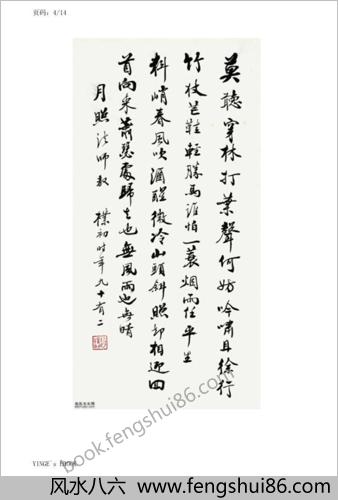 页码：4/14
莫聽穿林打葉聲何妨吟嘯且徐行
竹杖芒鞋輕勝馬誰怕一蓑烟雨任平生
料峭春風吹酒醒微冷山頭斜照却相迎回
首向來蕭瑟處歸去也無風雨也無晴
月照法師教
樸初時年九十有二
book.fengshui86.com
YINGE's EBOOK
风水八六 www.fengshui86.com